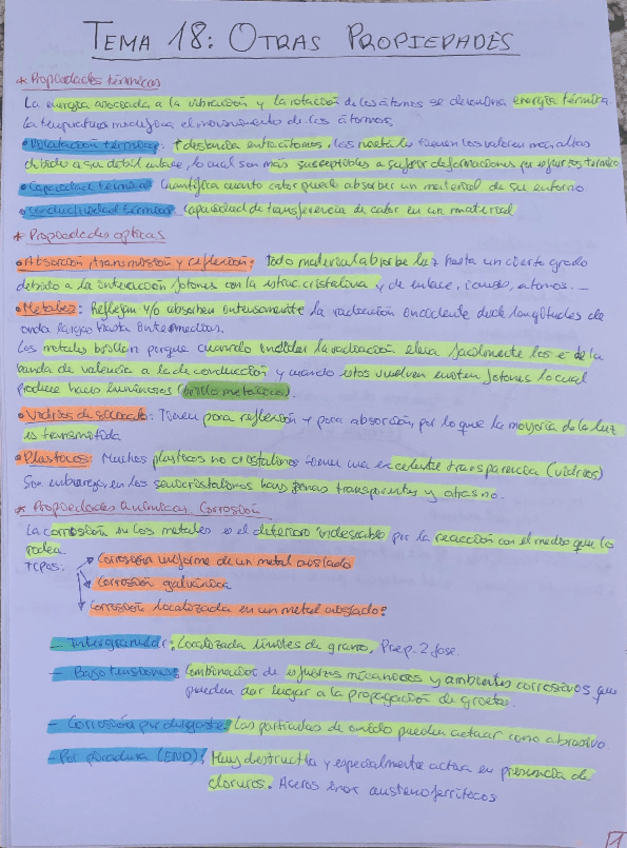 TEMA 18: OTRAS PROPIEDADES
* Propiedades térmicas
La energía asociada a la vibración y la rotación de los átomos se denomina energía térmica.
La temperatura modifica el movimiento de los átomos.
• Dilatación térmica: ↑ distancia entre átomos, los metales tienen los valores más altos
debido a su debil enlace, lo cual son más susceptibles a sufrir deformaciones por esfuerzos térmico
• Capacidad térmica: Cuantifica cuanto calor puede absorber un material de su entorno
• Conductividad térmica: Capacidad de transferencia de calor en un material
* Propiedades opticas
• Absorción, transmisión y reflexión: todo material absorbe luz hasta un cierto grado
debido a la interacción fotones con la estruc. cristalina y de enlace, átomos...
• Metales: Reflejan y/o absorben intensamente la radiación incidente desde longitudes de
onda largas hasta intermedias.
Los metales brillan porque cuando incidir la radiación eleva facilmente los e⁻ de la
banda de valencia a la de conducción y cuando estos vuelven emiten fotones lo cual
produce haces luminosos (brillo metálicos).
• Vidrios de silicato: Tienen poca reflexión y poca absorción, por lo que la mayoría de la luz
es transmitida
• Plásticos: Muchos plasticos no cristalinos tienen una excelente transparencia (vidrios)
Sin embargo en los semicristalinos hay zonas transparentes y otras no.
* Propiedades Químicas. Corrosión
La corrosión en los metales es el deterioro indeseable por la reacción con el medio que lo
rodea.
Tipos: → Corrosión uniforme de un metal aislado
→ Corrosión galvánica
→ Corrosión localizada en un metal aislado:
- Intergranular: Localizada límites de grano. Prep. 2 fase.
- Bajo tensiones: Combinación de esfuerzos mecánicos y ambientes corrosivos que
pueden dar lugar a la propagación de grietas.
- Corrosión por desgaste: Las particulas de oxido pueden actuar como abrasivo.
- Por picadura (END): Muy destructiva y especialmente activa en presencia de
cloruros. Aceros inox austenoferríticos
1